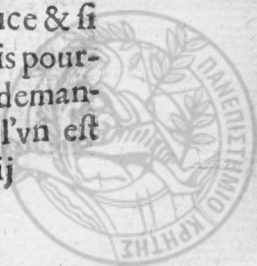 uce & ſi
is pour-
deman-
l'vn eſt
ij
ΠΑΝΕΠΙΣΤΗΜΙΟ ΚΡΗΤΗΣ